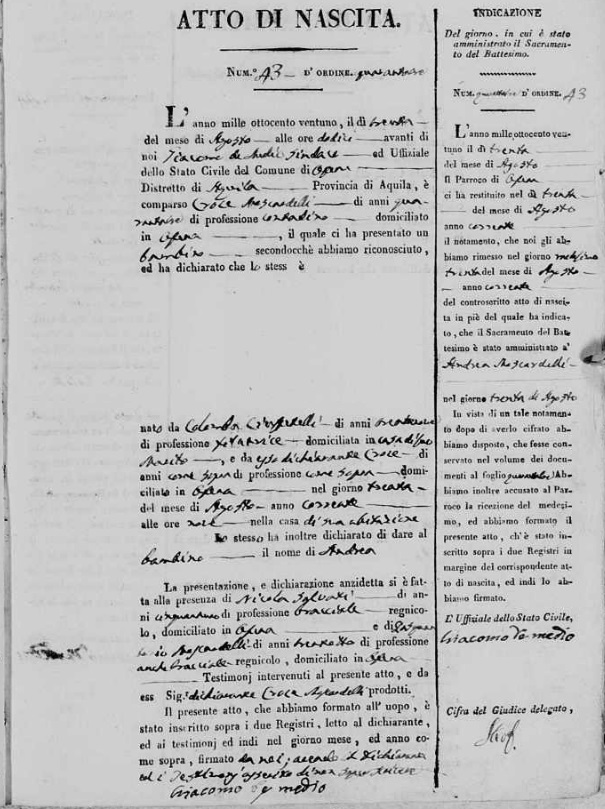 ATTO DI NASCITA.
NUM.º 43 D' ORDINE. quarantatre
L' anno mille ottocento ventuno, il dì trenta
del mese di Agosto alle ore dodici avanti di
noi Giacomo de Medio Sindaco ed Uffiziale
dello Stato Civile del Comune di Ofena
Distretto di Aquila Provincia di Aquila, è
comparso Croce Moscardelli di anni
di professione contadino domiciliato
in Ofena, il quale ci ha presentato un
bambino secondocchè abbiamo riconosciuto,
ed ha dichiarato che lo stess è
nato da Colomba di anni
di professione filatrice domiciliata in casa di suo
Marito, e da esso dichiarante Croce di
anni come sopra di professione come sopra domi-
ciliato in Ofena nel giorno trenta
del mese di Agosto anno corrente
alle ore nove nella casa di sua abitazione
Lo stesso ha inoltre dichiarato di dare al
bambino il nome di Andrea
La presentazione, e dichiarazione anzidetta si è fat-
ta alla presenza di Nicola Silvari di an-
ni cinquantuno di professione bracciale regnico-
lo, domiciliato in Ofena e di
Moscardelli di anni trentotto di professione
anche bracciale regnicolo, domiciliato in Ofena
Testimonj intervenuti al presente atto, e da
ess Sig. dichiarante Croce Moscardelli prodotti.
Il presente atto, che abbiamo formato all' uopo, è
stato inscritto sopra i due Registri, letto al dichiarante,
ed ai testimonj ed indi nel giorno mese, ed anno co-
me sopra, firmato da noi, avendo il dichiarante
ed i Testimonj di non sapere scrivere
Giacomo de medio
INDICAZIONE
Del giorno, in cui è stato
amministrato il Sacramen-
to del Battesimo.
NUM. D' ORDINE. 43
L'anno mille ottocento ven-
tuno il dì trenta
del mese di Agosto
il Parroco di Ofena
ci ha restituito nel dì trenta
del mese di Agosto
anno corrente
il notamento, che noi gli ab-
biamo rimesso nel giorno medesimo
trenta del mese di Agosto
anno corrente
del controscritto atto di nasci-
ta in piè del quale ha indica-
to, che il Sacramento del Bat-
tesimo è stato amministrato a'
Andrea Moscardelli
nel giorno trenta di Agosto
In vista di un tale notamen-
to dopo di averlo cifrato ab-
biamo disposto, che fosse con-
servato nel volume dei docu-
menti al foglio Ab-
biamo inoltre accusato al Par-
roco la ricezione del medesi-
mo, ed abbiamo formato il
presente atto, ch' è stato in-
scritto sopra i due Registri in
margine del corrispondente at-
to di nascita, ed indi lo ab-
biamo firmato.
L' Uffiziale dello Stato Civile,
Giacomo de medio
Cifra del Giudice delegato,